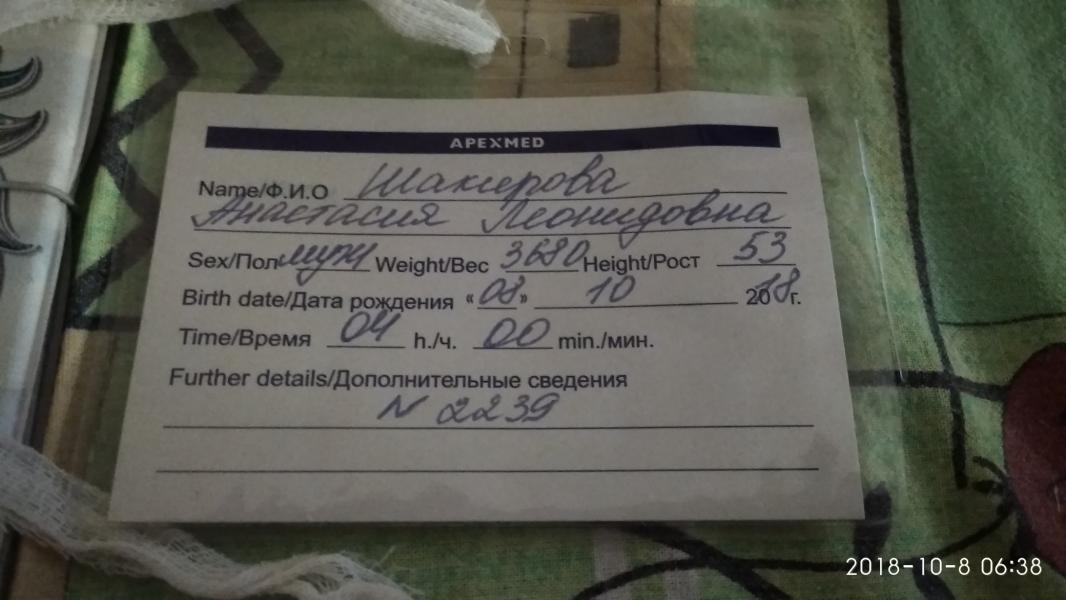 APEXMED
Name/Ф.И.О Шакирова
Анастасия Леонидовна
Sex/Пол муж Weight/Вес 3680 Height/Рост 53
Birth date/Дата рождения «08» 10 2018г.
Time/Время 04 h./ч. 00 min./мин.
Further details/Дополнительные сведения
N 2239
2018-10-8 06:38